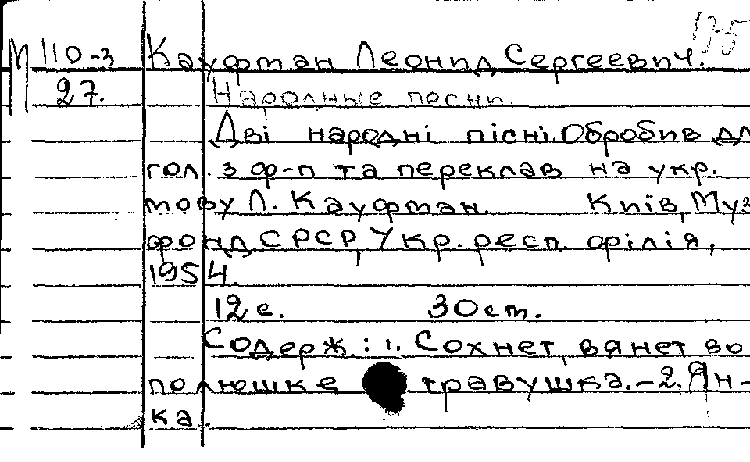 135
М 110-3 Кауфман Леонид Сергеевич.
27. Народные песни.
Дві народні пісні. Обробив для
гол. з ф-п та переклав на укр.
мову Л. Кауфман. Київ, Муз
фонд СРСР, Укр. респ. філія,
1954.
12 с. 30 ст.
Содерж: 1. Сохнет, вянет во
полюшке травушка. - 2. Ян-
ка.